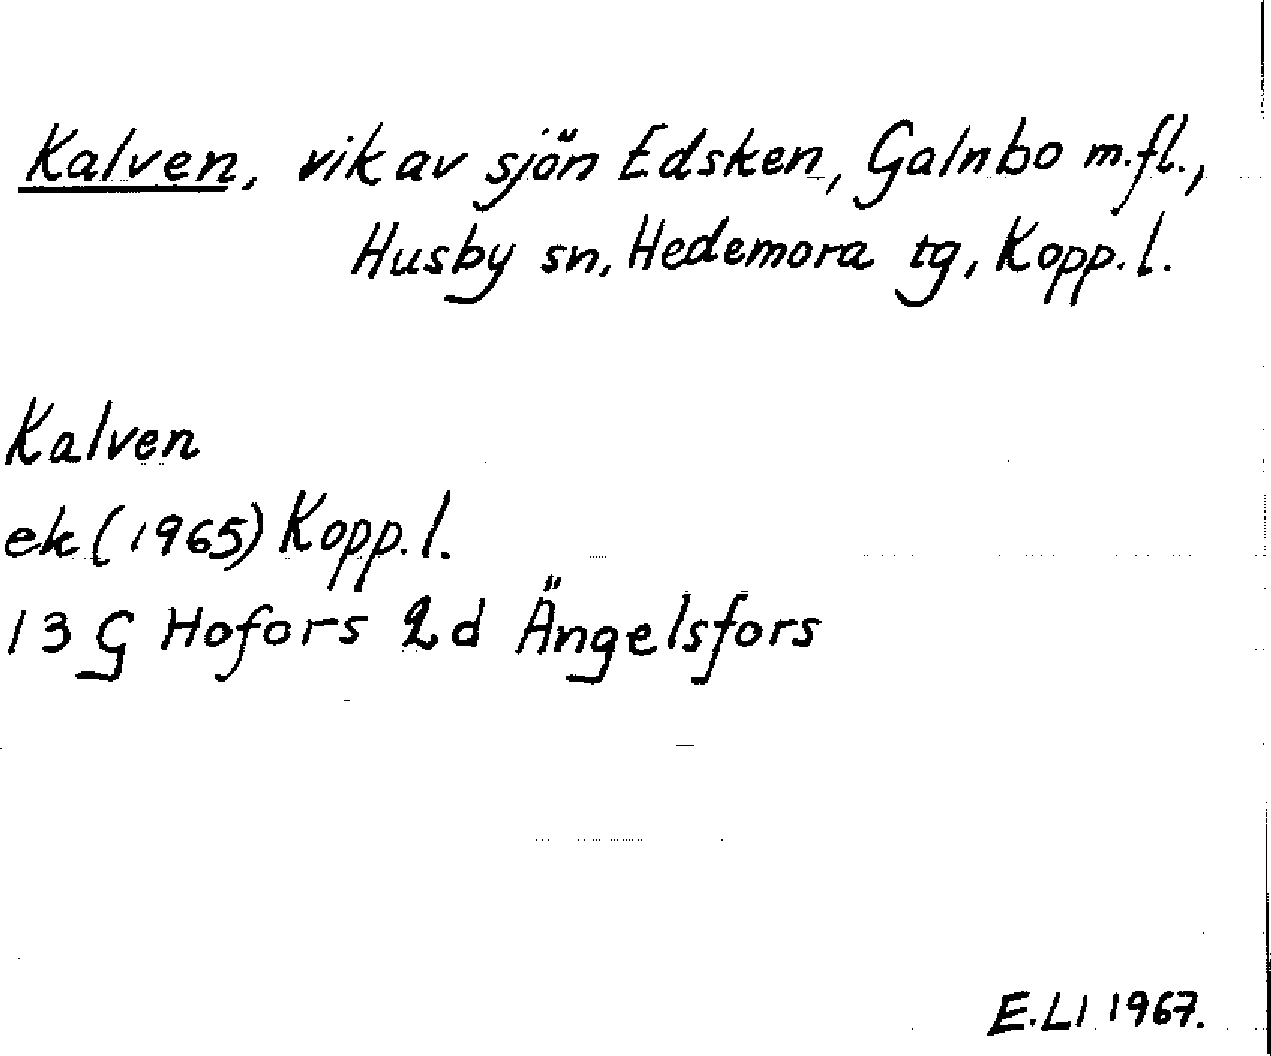 Kalven, vik av sjön Edsken, Galnbo m.fl.,
Husby sn, Hedemora tg, Kopp. l.
Kalven
ek (1965) Kopp. l.
13 G Hofors 2d Ängelsfors
E.Ll 1967.